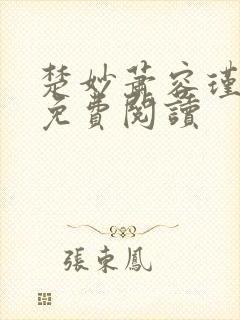 楚妙蕭容瑾
免費閱讀
張東鳳